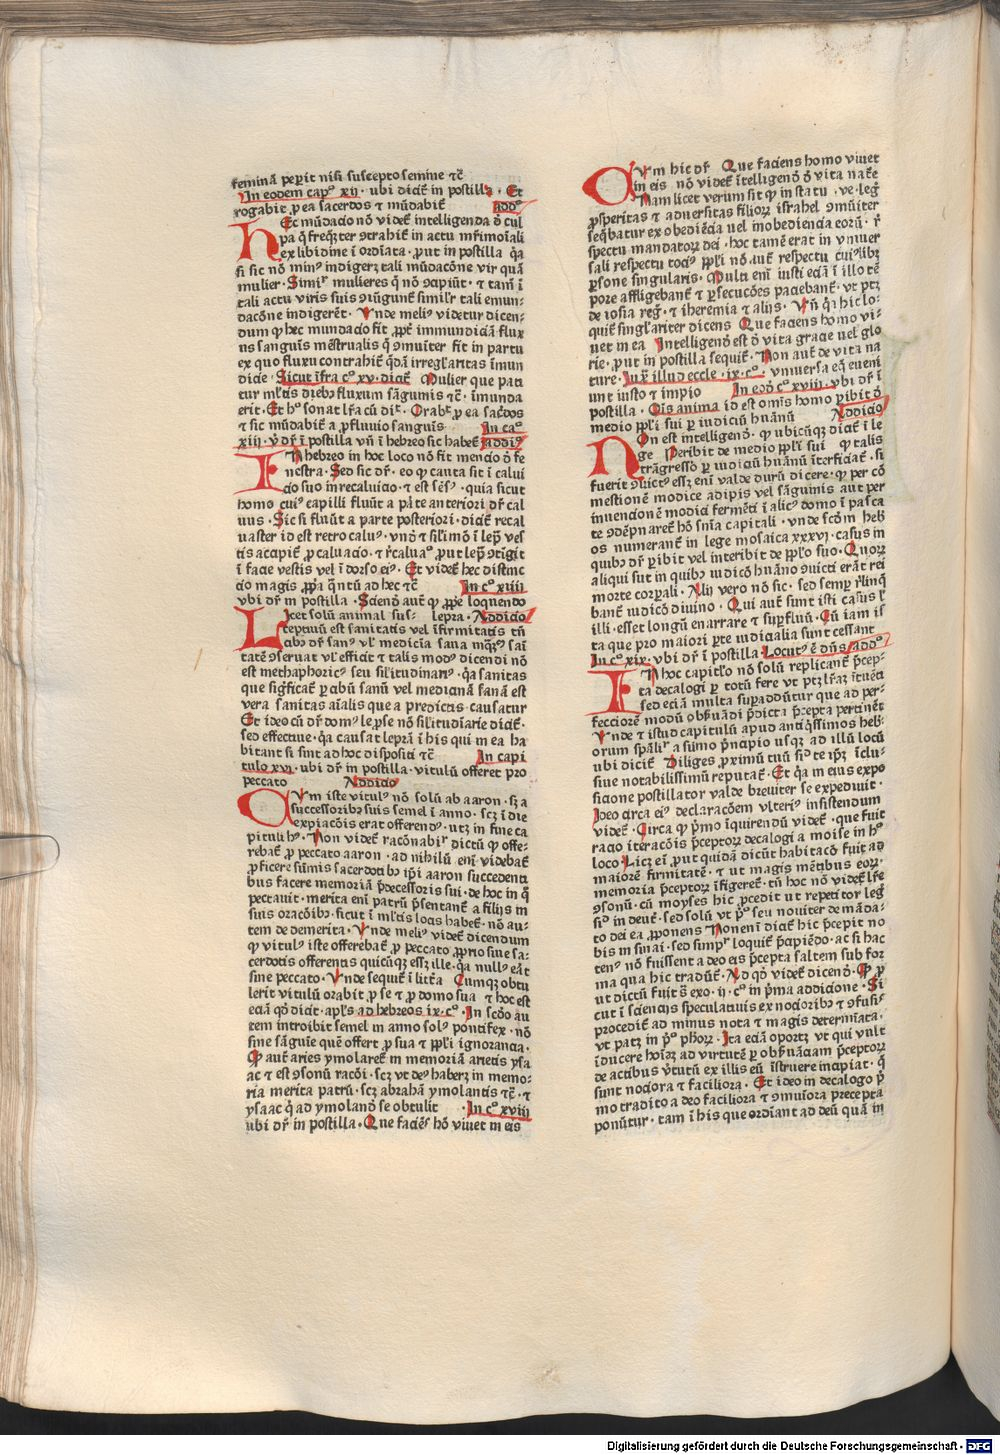 feminā peꝑit nisi suscepto semine ⁊c̄
In eodem cap° xij · ubi dicit̄ in postilla · Et
rogabit ꝓ ea sacerdos ⁊ mūdabit̄ add°
Hec mūdacio nō videt̄ intelligenda ō cul
pa q̄ freq̄ter ↄtrahit̄ in actu mr̄imoīali
ex libidine ī ordīata · ꝓut in postilla q̄a
si sic nō minꝰ indigerꝫ tali mūdacōne vir quā
mulier · Simiꝉr mulieres q̄ nō ↄcipiūt · ⁊ tam̄ ī
tali actu viris suis ↄiūgunt̄ similꝉr tali emun-
dacōne indigerēt · Vnde meliꝰ videtur dicen-
dum ꝙ hec mundacio fit ꝓpt̄ immundiciā flux
us sanguīs mēstrualis q̄ ↄmuiter fit in partu
ex quo fluxu contrahit̄ q̄dā irreglaritas īmun
dicie · Sicut īfra c° xv · dicit̄ Mulier que pati
tur ml̄tis dieb͛ fluxum sāguinis ⁊c̄ · īmunda
erit · Et h° sonat l̄ra cū dr̄ · Orabit̄ ꝓ ea sac̄dos
⁊ sic mūdabit̄ a ꝓfluvio sanguīs In ca°
xiij · v̄ dr̄ ī postilla vn̄ ī hebreo sic habet̄ addi°
In hebreo in hoc loco nō fit mencio ō fe
nestra · Sed sic dr̄ · eo ꝙ cauta sit ī calui
cio suo in recaluicio · ⁊ est sēsꝰ · quia sicut
homo cuiꝰ capilli fluūt a p̄te anteriori dr̄ cal
uus · Sic si fluūt a parte posteriori · dicit̄ recal
uaster id est retro caluꝰ · vnō ⁊ sil̄imō ī lep̄ ves
tis accipit̄ ꝓ caluacio · ⁊ r̄caluac̄ ꝓut lep̄ ↄtigit
ī facie vestis vel ī dorso eiꝰ · Et videt̄ hec distinc
cio magis ꝓp̄a q̄ntū ad hec ⁊c̄ In c° xiiij
vbi dr̄ in postilla · Sciend̄ aut̄ ꝙ ꝓp̄e loquendo
Licet solū animal sus- lepra · Addicio
ceptiuū est sanitatis vel īfirmitatis tn̄
cib͛ dr̄ sanꝰ vl̄ medicīa sana inq̄ꝫ sani
tatē ↄseruat vl̄ efficit ⁊ talis modꝰ dicendi nō
est methaphoricꝰ seu sil̄itudinariꝰ · q̄a sanitas
que sigficat̄ ꝑ cibū sanū vel medicinā sanā est
vera sanitas aīalis que a predictis causatur
Et ideo cū dr̄ domꝰ lep̄se nō sil̄itudīarie dicit̄ ·
sed effectiue · q̄a causat leprā ī his qui in ea ha
bitant si sint ad hoc dispositi ⁊c̄ In capi
tulo xvi · ubi dr̄ in postilla · vitulū offeret pro
peccato Addicio
Cum iste vitulꝰ nō solū ab aaron · sꝫ a
successorib͛ suis semel ī anno · scꝫ ī die
expiacōis erat offerendꝰ · utꝫ in fine ca
pituli hꝰ · Non videt̄ racōnabiꝉr dictū ꝙ offe-
rebat̄ ꝓ peccato aaron · ad nihilū enī videbat̄
ꝓficere sūmis sacerdotib͛ ip̄i aaron succedenti
bus facere memoriā p̄decessoris sui · de hoc in q̄
peccauit · merita enī patrū p̄sentant̄ a filijs in
suis oracōib͛ · sicut ī ml̄tis locis habet̄ · nō au-
tem de demerita · Vnde meliꝰ videt̄ dicendum
ꝙ vitulꝰ iste offerebat̄ ꝓ peccato ꝓprio siue sa-
cerdotis offerentis quicūqꝫ essꝫ ille · q̄a nullꝰ eāt
sine peccato · Vnde sequit̄ ī litt̄a Cumqꝫ obtu
lerit vitulū orabit ꝓ se ⁊ ꝓ domo sua ⁊ hoc est
eciā qō dicit · apl̄s ad hebreos ix · c° · In scd̄o au
tem introibit semel in anno solꝰ pontifex · nō
sine sāguīe quē offert ꝓ sua ⁊ ꝓpl̄i ignorancia ·
Ꝙ aut̄ aries ymolaret̄ in memoriā arietis ysa
ac ⁊ est ↄsonū racōi · scꝫ vt deꝰ haberꝫ in memo-
ria merita patrū · scꝫ abrahā ymolantis ⁊c̄ · ⁊
ysaac q̄ ad ymoland̄ se obtulit · In c° xviij
ubi dr̄ in postilla · Que faciēs hō viuet in eis
Cum hic dr̄ Que faciens homo viuet
in eis nō videt̄ ītelligend̄ ō vita nat̄e
Nam licet verum sit ꝙ in statu · ve · leḡ
ꝓsperitas ⁊ aduersitas filioꝝ israhel ↄmūiter
seq̄batur ex obediēcia vel inobediencia eoꝝ · r̄
spectu mandatoꝝ dei · hoc tamē erat in vniuer
sali respectu tociꝰ ꝓpl̄i nō aut̄ respectu cuiꝰlibꝫ
ꝑsone singularis · Multi enī iusti eciā ī illo tē
poze affligebant̄ ⁊ ꝑsecucōes paciebant̄ · ut ptꝫ
de iosia reḡ · ⁊ iheremia ⁊ alijs · Vn̄ q̄a hic lo-
quit̄ singl̄ariter dicens Que faciens homo vi-
uet in ea Intelligend̄ est ō vita gracie uel glo
rie · put in postilla sequit̄ · Non aut̄ de vita na
ture · Iuꝫ illud eccle · ix · c° · vniuersa eq̄ eueni
unt iusto ⁊ impio In eod̄ c° xviij · vbi dr̄ ī
postilla · Oīs anima id est om̄is homo ꝑibit ō
medio ꝓpl̄i sui ꝑ iudiciū huānū Addicio
Non est intelligend̄ · ꝙ ubicūqꝫ dicit̄ ī le
ge Peribit de medio ꝓpl̄i sui ꝙ talis
trāgresso ꝑ iudiciū huānū īterficiat̄ · si
fuerit ↄuictꝰ essꝫ enī valde durū dicere · ꝙ per cō
mestionē modice adipis vel sāguinis aut per
inuencionē modici fermēti ī alicꝰ domo ī pasca
te ↄdēpnaret̄ hō snīa capitali · vnde scd̄m heb̄
os numerant̄ in lege mosaica xxxvj · casus in
quib͛ dr̄ ꝑibit vel interibit de ꝓpl̄o suo · Quoꝝ
aliqui sut in quib͛ iudicō huāno ↄuicti erāt rei
morte corꝑali · Alij vero nō sic · sed semꝑ r̄linq̄
bant̄ iudicō diuino · Qui aut̄ sunt isti casus l̄
illi · esset longū enarrare ⁊ suꝑfluū · Cū iam is
ta que pro maiori ꝑte iudicialia sunt cessant
In c° xix · vbi dr̄ ī postilla · Locutꝰ ē dn̄s add°
In hoc capitl̄o nō solū replicant̄ p̄cep-
ta decalogi ꝑ totū fere vt ptꝫ l̄raꝫ ītuēti
sed eciā multa suꝑaddūtur que ad per-
fecciorē modū ob̄ẜuādi p̄dicta p̄cepta pertinēt
Vnde ⁊ istud capitulū apud antiq̄ssimos heb̄
orum spāliꝉr a sūmo p̄ncipio usqꝫ ad illū locū
ubi dicit̄ Diliges ꝓximū tuū sic̄ te ip̄ꝫ īclu-
siue notabilissimū reputat̄ · Et q̄a in eius expo
sicione postillator valde breuiter se expediuit ·
Ideo circa eiꝰ declaracōem vlteriꝰ insistendum
videt̄ · Circa ꝙ p̄mo īquirendū videt̄ · que fuit
racio iteracōis p̄ceptoꝝ decalogi a moise in h°
loco · Licꝫ eī put quidā dicūt habitacō fuit ad
maiorē firmitatē · ⁊ ut magis mētibus eoꝝ ·
memoria p̄ceptoꝝ īfigeret̄ · tn̄ hoc nō videt̄ l̄re
ↄsonū · cū moyses hic ꝓcedit ut repetitor leḡ
sic̄ in deut̄ · sed solū ut p̄° seu nouiter de māda-
to dei ea ꝓponens Nonenī dicit̄ hic p̄cepit no
bis in sinai · sed simpꝉr loquit̄ p̄cipiēdo · ac si hac
tenꝰ nō fuissent a deo eis p̄cepta saltem sub for
ma qua hic tradūt̄ · Ad qd̄ videt̄ dicend̄ · Ꝙ ꝓ
ut dictū fuit s̄ exo · ij · c° in p̄ma addicione · Si
cut ī scienciis speculatiuis ex nocioribꝰ ⁊ ↄfusiꝰ
procedit̄ ad minus nota ⁊ magis determīata ·
vt patꝫ in p̄° phōꝝ · Ita eciā oportꝫ vt qui vult
īducere hoīeꝫ ad virtutē ꝑ obẜuāciam p̄ceptoꝝ
de actibus v̄tutū ex illis eū īstruere incipiat · q̄
sunt nociora ⁊ faciliora · Et ideo in decalogo p̄
mo tradito a deo faciliora ⁊ ↄmuiora precepta
ponūtur · tam ī his que ordiant ad deū quā in
Digitalisierung gefördert durch die Deutsche Forschungsgemeinschaft - DFG